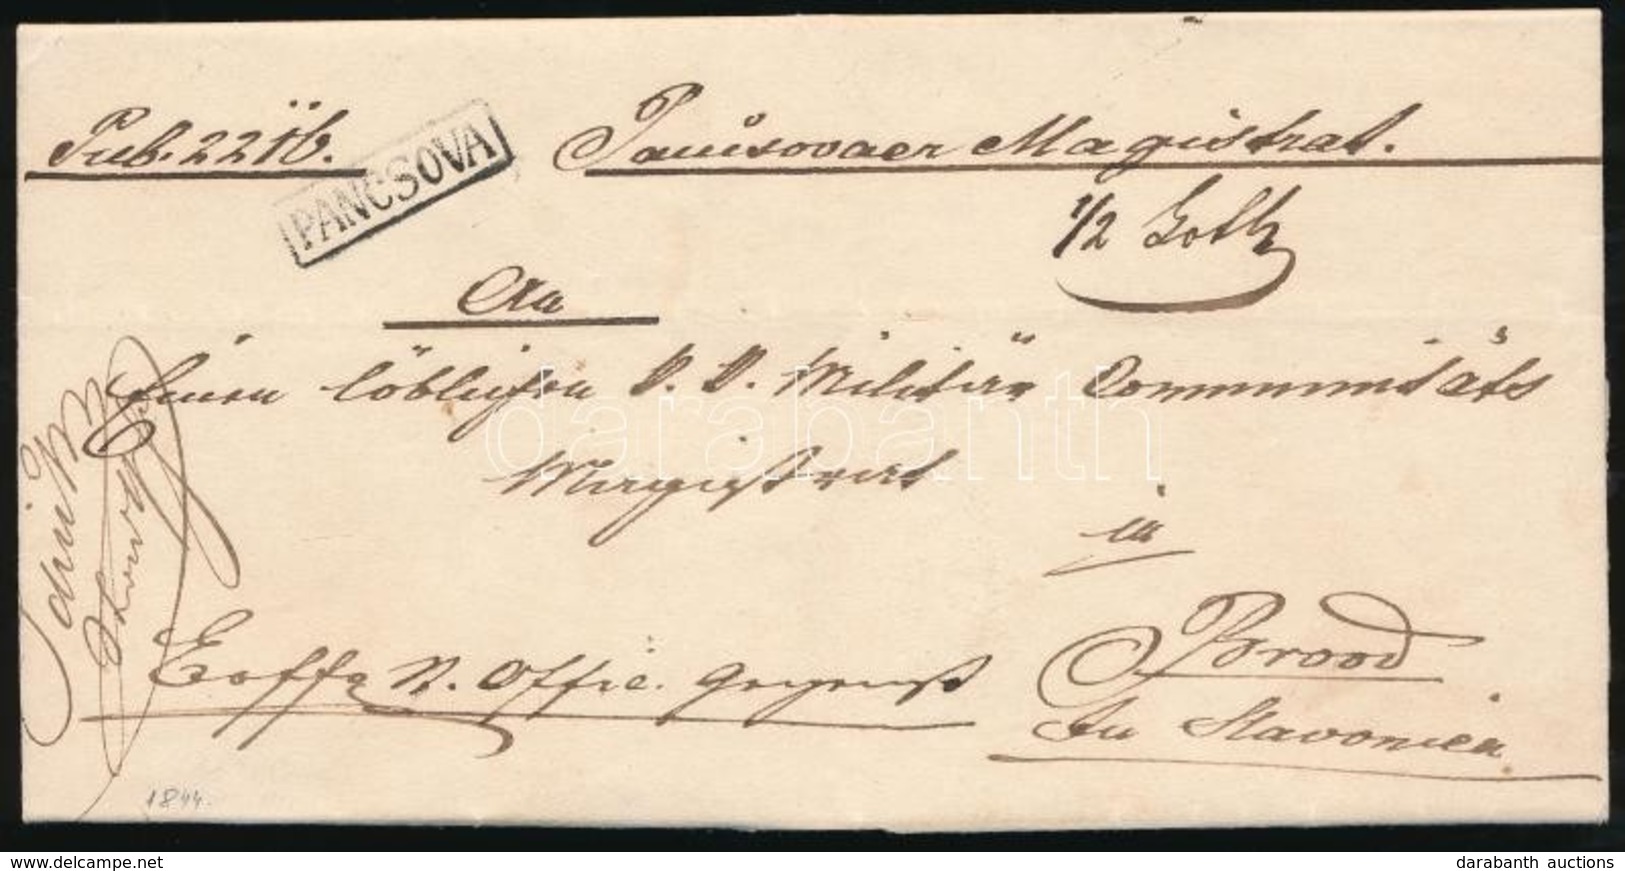 Pub. 22 10b. PANCSOVA Pancsovaer Magistrat.
1/2 Loth
An
Einen löblichen K. K. Militär Communitäts
Magistrat
in
Brood
In Slavonien
Exoffo K. Offic. Gegenst
1844.
darabanth
darabanth auctions
https://www.delcampe.net